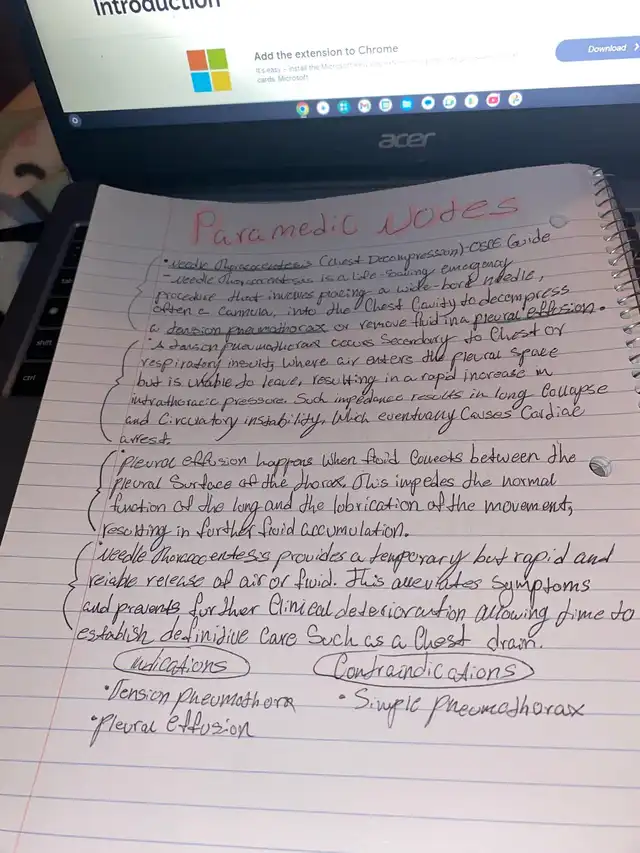 Introduction
Add the extension to Chrome
Download >
cards. Microsoft
acer
shift
ctrl
Paramedic Notes
• Needle Thoracentesis (Chest Decompression)-OSCE Guide
- Needle Thoracentesis is a life-saving emergency
procedure that involves placing a wide-bore needle,
often a cannula, into the Chest Cavity to decompress
a tension pneumothorax or remove fluid in a pleural effusion.
• A tension pneumathorax occurs Secondary to Chest or
respiratory insult, Where air enters the pleural space
but is unable to leave, resulting in a rapid increase in
intrathoracic pressure. Such impedance results in lung Collapse
and Circulatory instability, Which eventually Causes Cardiac
arrest.
• pleural effusion happens when fluid Collects between the
pleural Surface of the thorax. This impedes the normal
function of the lung and the lubrication of the movement,
resulting in further fluid accumulation.
• Needle Thoracentesis provides a temporary but rapid and
reliable release of air or fluid. This alleviates Symptoms
and prevents further Clinical deterioration allowing time to
establish definitive care Such as a Chest drain.
Indications
Contraindications
• Tension pneumothora
• Simple pneumothorax
• Pleural effusion